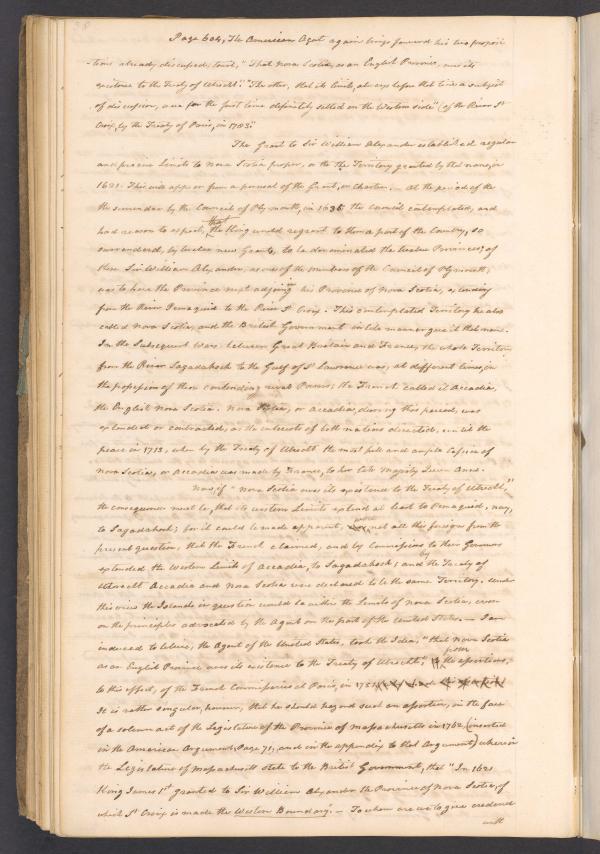 Page 604, The American Agent again brings forward his two proposi
-tions already discussed, Viz, "That Nova Scotia, as an English Province, owes its
existence to the Treaty of Utrecht." The other, that its limits, always before that time a subject
of discussion, was for the first time definitely settled on the Western side" (of the River St
Croix, by the Treaty of Paris, in 1783."
The Grant to Sir William Alexander established regular
and precise Limits to Nova Scotia proper, or the the Territory granted by that name, in
1621. This will appear from a perusal of the Grant, or Charter. — At the period of the
the surrender by the Council of Plymouth, in 1635 the Council contemplated, and
had reason to expect, that the King would regrant to them a part of the Country, so
surrendered, by twelve new Grants, to be denominated the twelve Provinces; of
these Sir William Alexander, as one of the members of the Council of Plymouth,
was to have the Province next adjoining his Province of Nova Scotia, extending
from the River Pemaquid to the River St Croix. This contemplated Territory he also
called Nova Scotia, and the British Government in like manner gave it that name.
In the Subsequent Wars between Great Britain and France, the whole Territory
from the River Sagadahock to the Gulf of St Lawrence was, at different times, in
the possession of these contending rival Powers; the French called it Accadia,
the English Nova Scotia. Nova Scotia, or Accadia, during this period, was
extended or contracted, as the interests of both nations directed, until the
peace in 1713, when by the Treaty of Utrecht the most full and ample Cession of
Nova Scotia, or Accadia was made by France, to her late Majesty Queen Anne.
Now, if "Nova Scotia owes its existence to the Treaty of Utrecht,"
the consequence must be, that its western Limits extend at least to Penaquid, nay,
to Sagadahock; for it could be made apparent, were not all this foreign from the
present question, that the French claimed, and by Commissions to their Governors
extended the Western Limits of Accadia, to Sagadahock; and by the Treaty of
Utrecht Accadia and Nova Scotia were declared to be the same Territory. Under
this view the Islands in question would be within the Limits of Nova Scotia, even
on the principles advocated by the Agent on the part of the United States. — I am
induced to believe, the Agent of the United States, took the Idea, "that Nova Scotia
as an English Province owes its existence to the Treaty of Utrecht," from the assertions,
to this effect, of the French Commissaries at Paris, in 1751
It is rather singular, however, that he should hazard such an assertion, in the face
of a solemn act of the Legislature of the Province of Massachusetts in 1762, (inserted
in the American Argument, Page 71, and in the appendix to that Argument) wherein
the Legislature of Massachusetts state to the British Government, that "In 1621
King James 1st granted to Sir William Alexander the Province of Nova Scotia, of
which St Croix is made the Western Boundary." — To whom are we to give credence